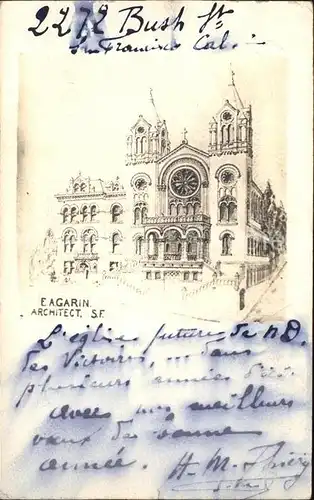 2272 Bush St
San Francisco Cal.
E.A.GARIN.
ARCHITECT. S.F.
L'église future de N.D.
des Victoires, ... dans
plusieurs années d'ici
avec mes meilleurs
vœux de bonne
année. H. M. Thiéry